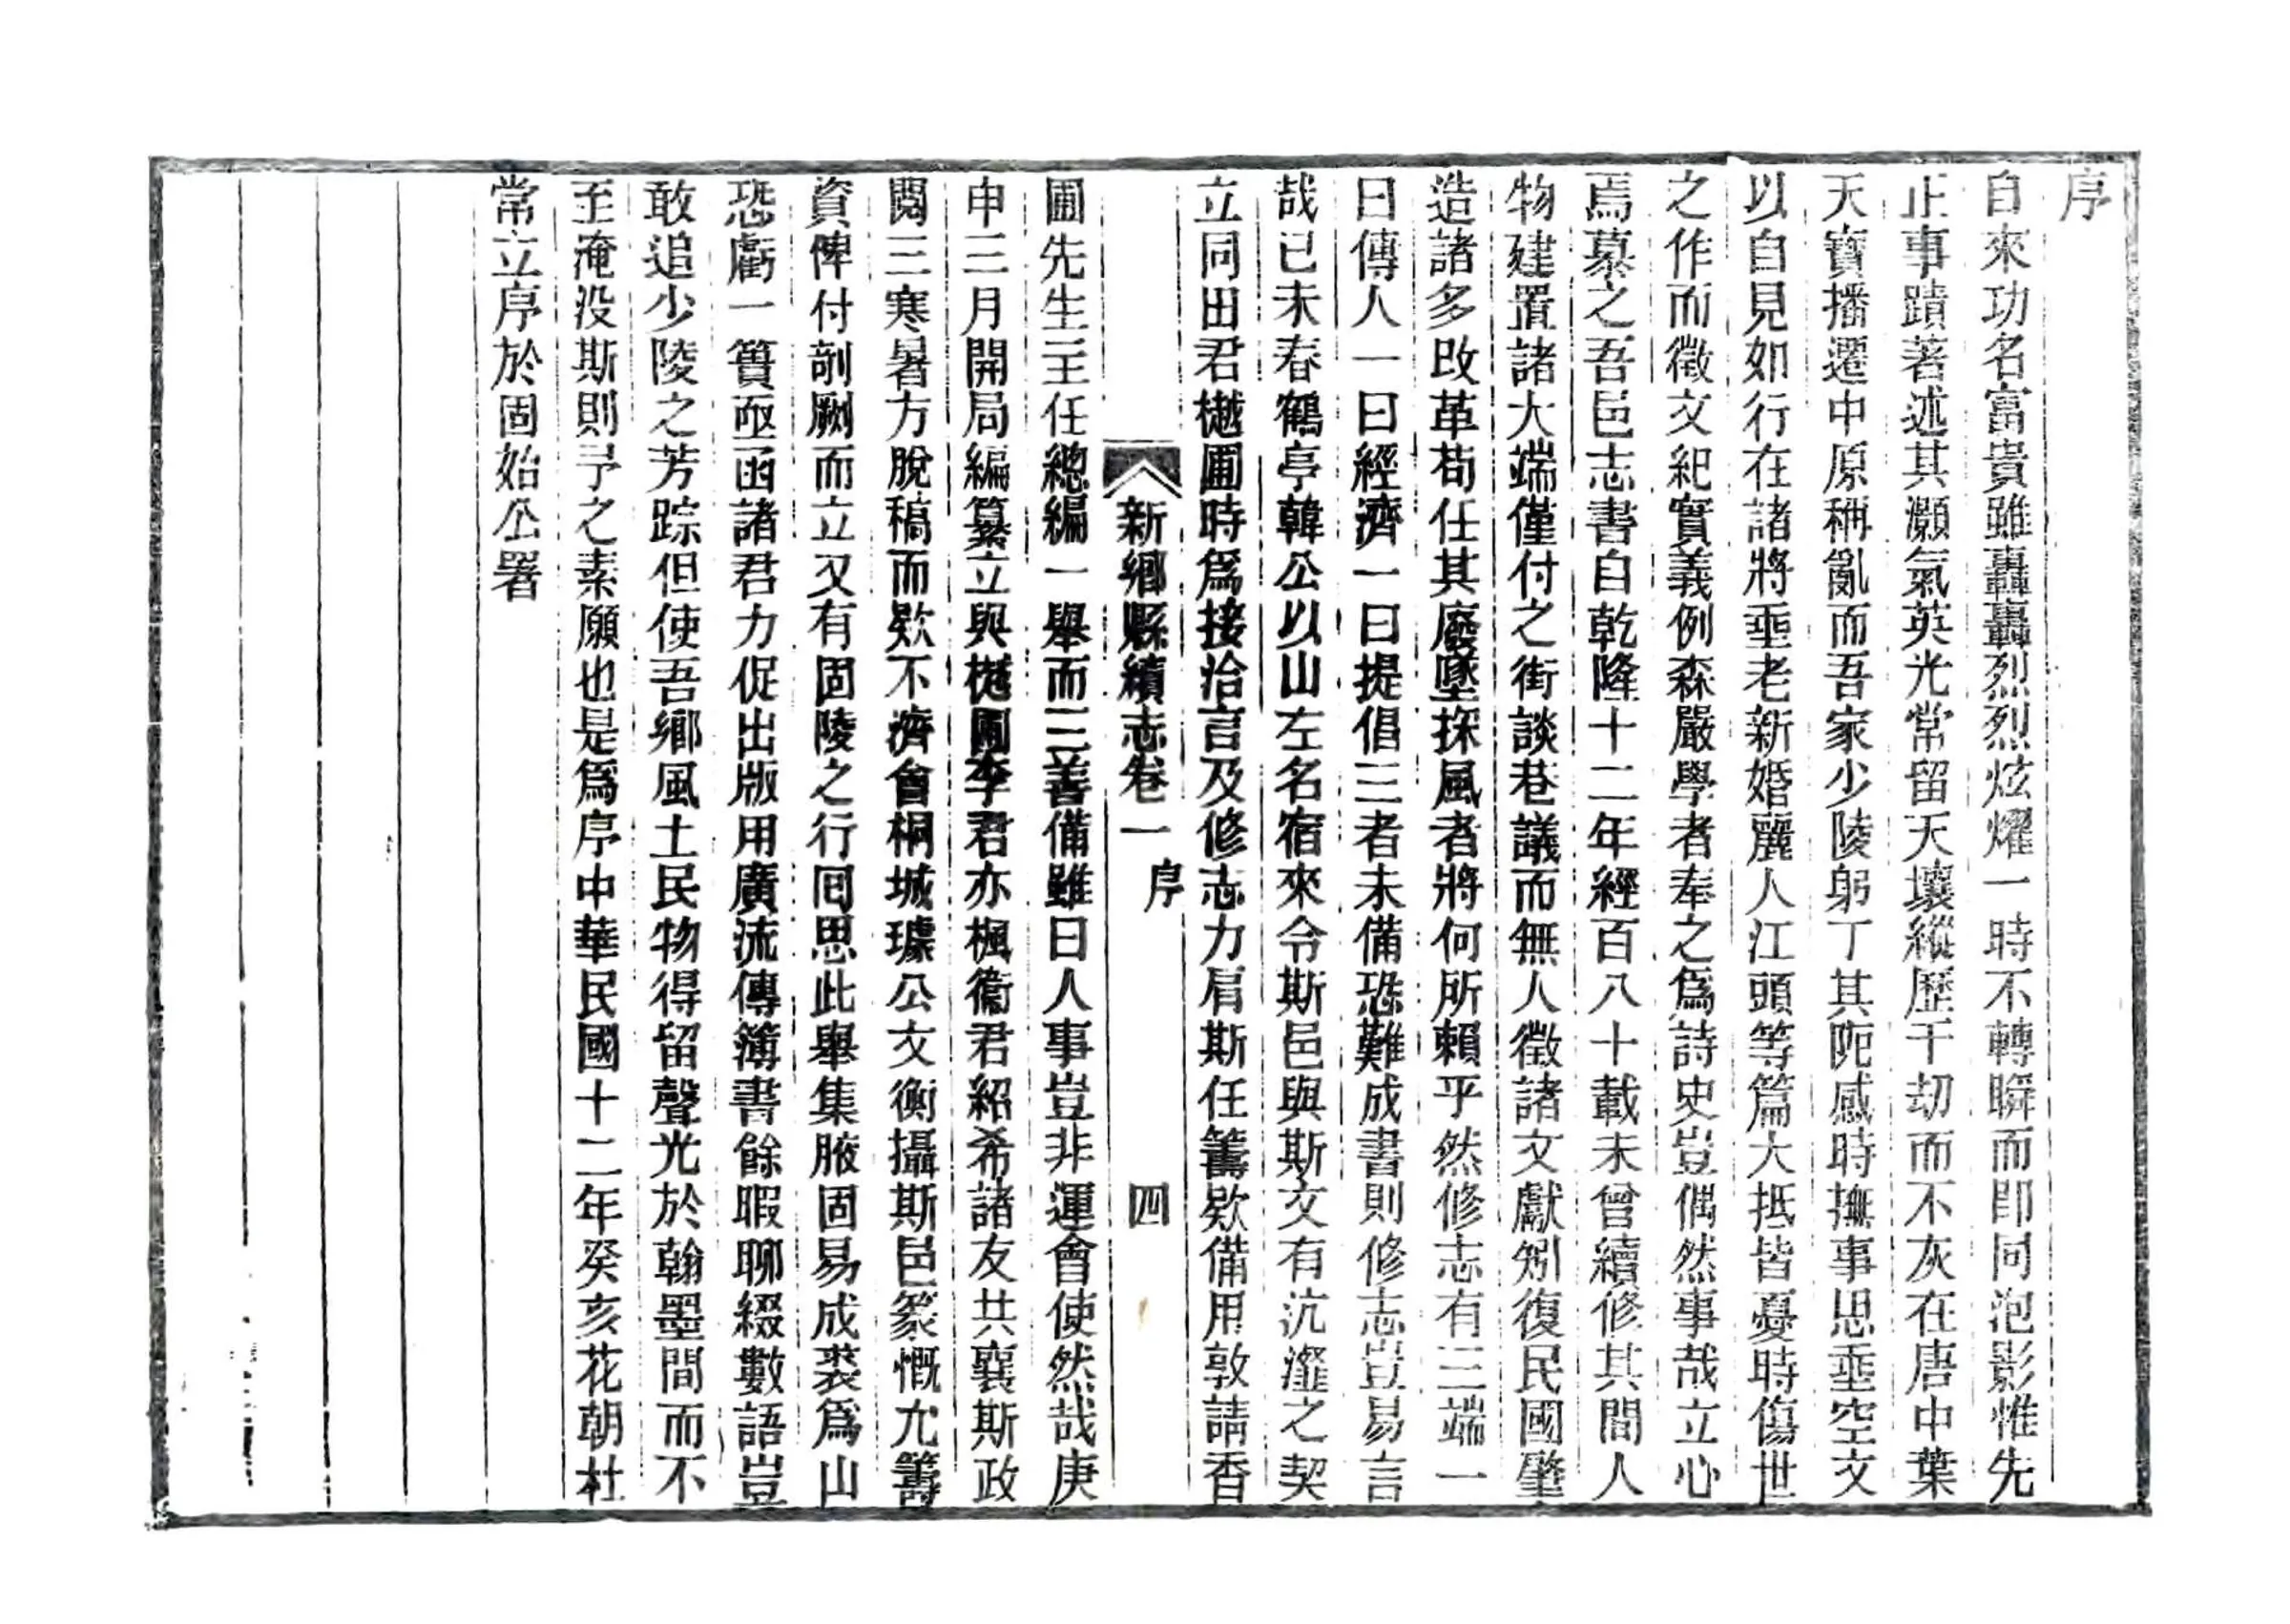 序
自來功名富貴雖轟轟烈烈炫燿一時不轉瞬而卽同泡影惟先
正事蹟著述其灝氣英光常留天壤縱歷千刧而不灰在唐中葉
天寶播遷中原稱亂而吾家少陵躬丁其阨感時撫事思垂空文
以自見如行在諸將垂老新婚麗人江頭等篇大抵皆憂時傷世
之作而徵文紀實義例森嚴學者奉之爲詩史豈偶然事哉立心
焉慕之吾邑志書自乾隆十二年經百八十載未曾續修其間人
物建置諸大端僅付之街談巷議而無人徵諸文獻矧復民國肇
造諸多改革苟任其廢墜採風者將何所賴乎然修志有三端一
曰傳人一曰經濟一曰提倡三者未備恐難成書則修志豈易言
哉已未春鶴亭韓公以山左名宿來令斯邑與斯文有沆瀣之契
立同田君樾圃時爲接洽言及修志力肩斯任籌欵備用敦請香
新鄉縣續志卷一 序 四
圃先生主任總編一舉而三善備雖曰人事豈非運會使然哉庚
申三月開局編纂立與樾圃李君亦楓衞君紹希諸友共襄斯政
閱三寒暑方脫稿而欵不濟會桐城璩公文衡攝斯邑篆慨允籌
資俾付剞劂而立又有固陵之行囘思此舉集腋固易成裘爲山
恐虧一簣亟函諸君力促出版用廣流傳簿書餘暇聊綴數語豈
敢追少陵之芳踪但使吾鄉風土民物得留聲光於翰墨間而不
至淹没斯則予之素願也是爲序中華民國十二年癸亥花朝杜
常立序於固始公署